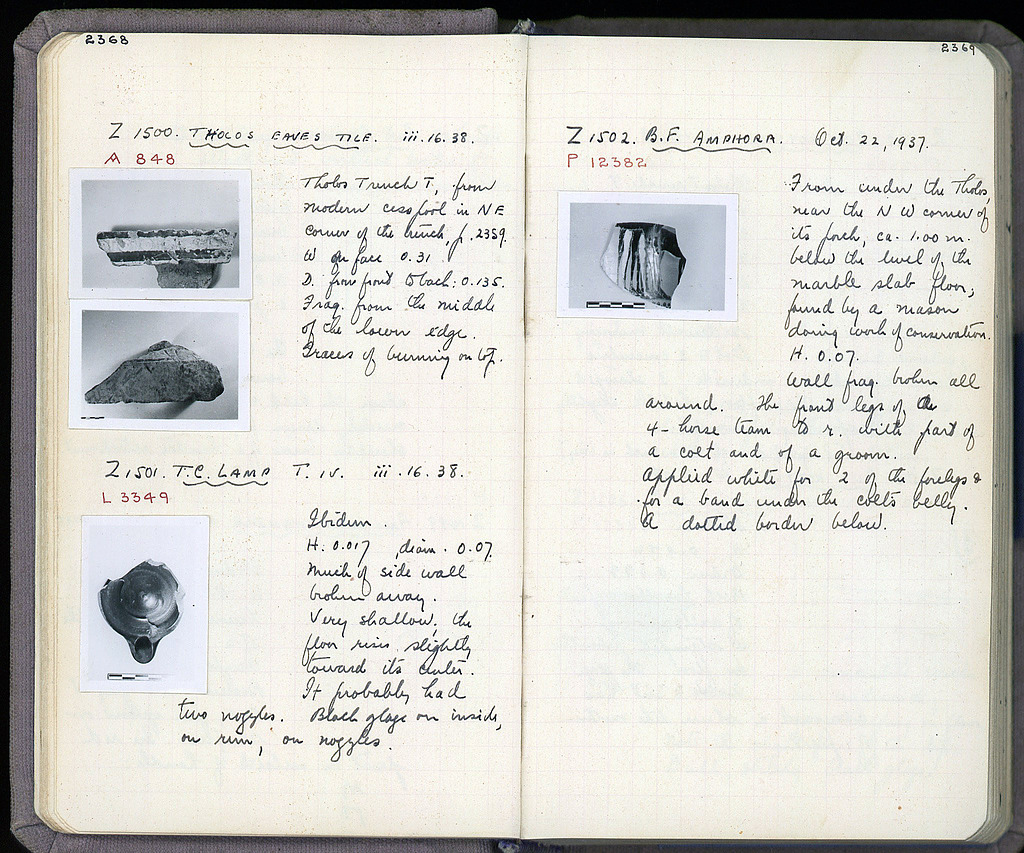 2368
Z 1500. THOLOS EAVES TILE. iii.16.38.
A 848
Tholos Trench T, from
modern cesspool in NE
corner of the trench, p. 2359.
W on face 0.31
D. from front to back: 0.135.
Frag. from the middle
of the lower edge.
Traces of burning on top.
Z 1501. T.C. LAMP T. iv. iii.16.38.
L 3349
Ibidem.
H. 0.017, diam. 0.07.
Much of side wall
broken away.
Very shallow; the
floor rises slightly
toward its center.
It probably had
two nozzles. Black glaze on inside,
on rim, on nozzles.
2369
Z 1502. B.F. AMPHORA. Oct. 22, 1937.
P 12382
From under the Tholos,
near the N W corner of
its porch, ca. 1.00 m.
below the level of the
marble slab floor,
found by a mason
doing work of conservation.
H. 0.07.
Wall frag. broken all
around. The front legs of the
4-horse team to r. with part of
a colt and of a groom.
Applied white for 2 of the forelegs &
for a band under the colt's belly.
A dotted border below.